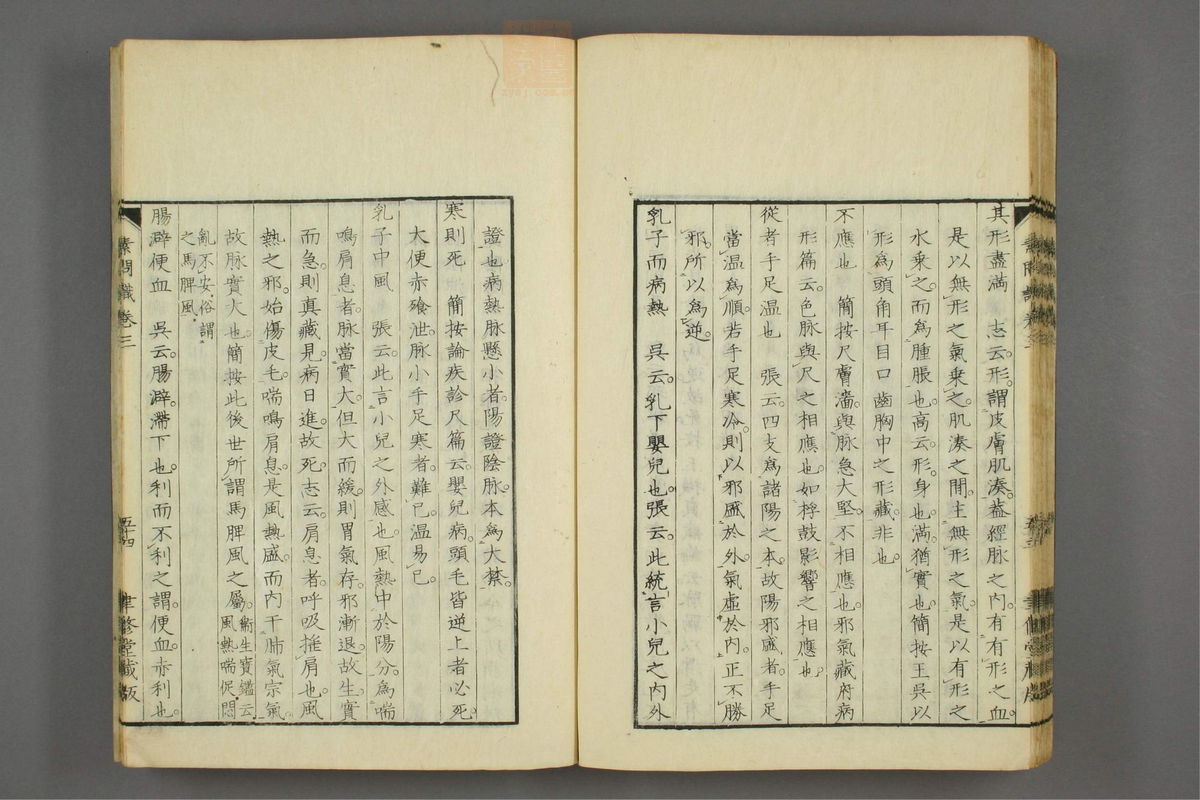 其形盡滿　志云。形。謂皮膚肌湊。蓋經脈之內。有有形之血。
是以無形之氣乗之。肌湊之間。主無形之氣。是以有形之
水乗之。而為腫脹也。高云。形。身也。滿。猶實也。簡按王吳以
形為頭角耳目口齒胸中之形藏。非也。
不應也　簡按尺膚濇。與脈急大堅。不相應也。邪氣藏府病
形篇云。色脈與尺之相應也。如桴鼓影響之相應也。
從者手足温也　張云。四支為諸陽之本。故陽邪盛者。手足
當温為順。若手足寒冷。則以邪盛於外。氣虛於內。正不勝
邪。所以為逆。
乳子而病熱　吳云。乳下嬰兒也。張云。此統言小兒之內外
證也。病熱脈懸小者。陽證陰脈。本為大禁。
寒則死　簡按論疾診尺篇云。嬰兒病。頭毛皆逆上者必死。
大便赤飱泄。脈小手足寒者難已。温易已。
乳子中風　張云。此言小兒之外感也。風熱中於陽分。為喘
鳴肩息者。脈當實大。但大而緩。則胃氣存。邪漸退故生。實
而急。則真藏見。病日進。故死。志云。肩息者。呼吸搖肩也。風
熱之邪。始傷皮毛。喘鳴肩息。是風熱盛而內干肺氣宗氣。
故脈實大也。簡按此後世所謂馬脾風之屬。衛生寶鑑云。風熱喘促。悶
亂不安。俗謂之馬脾風。
腸澼便血　吳云。腸澼。滯下也。利而不利之謂。便血。赤利也。
素問識卷三
五十四
聿修堂藏版